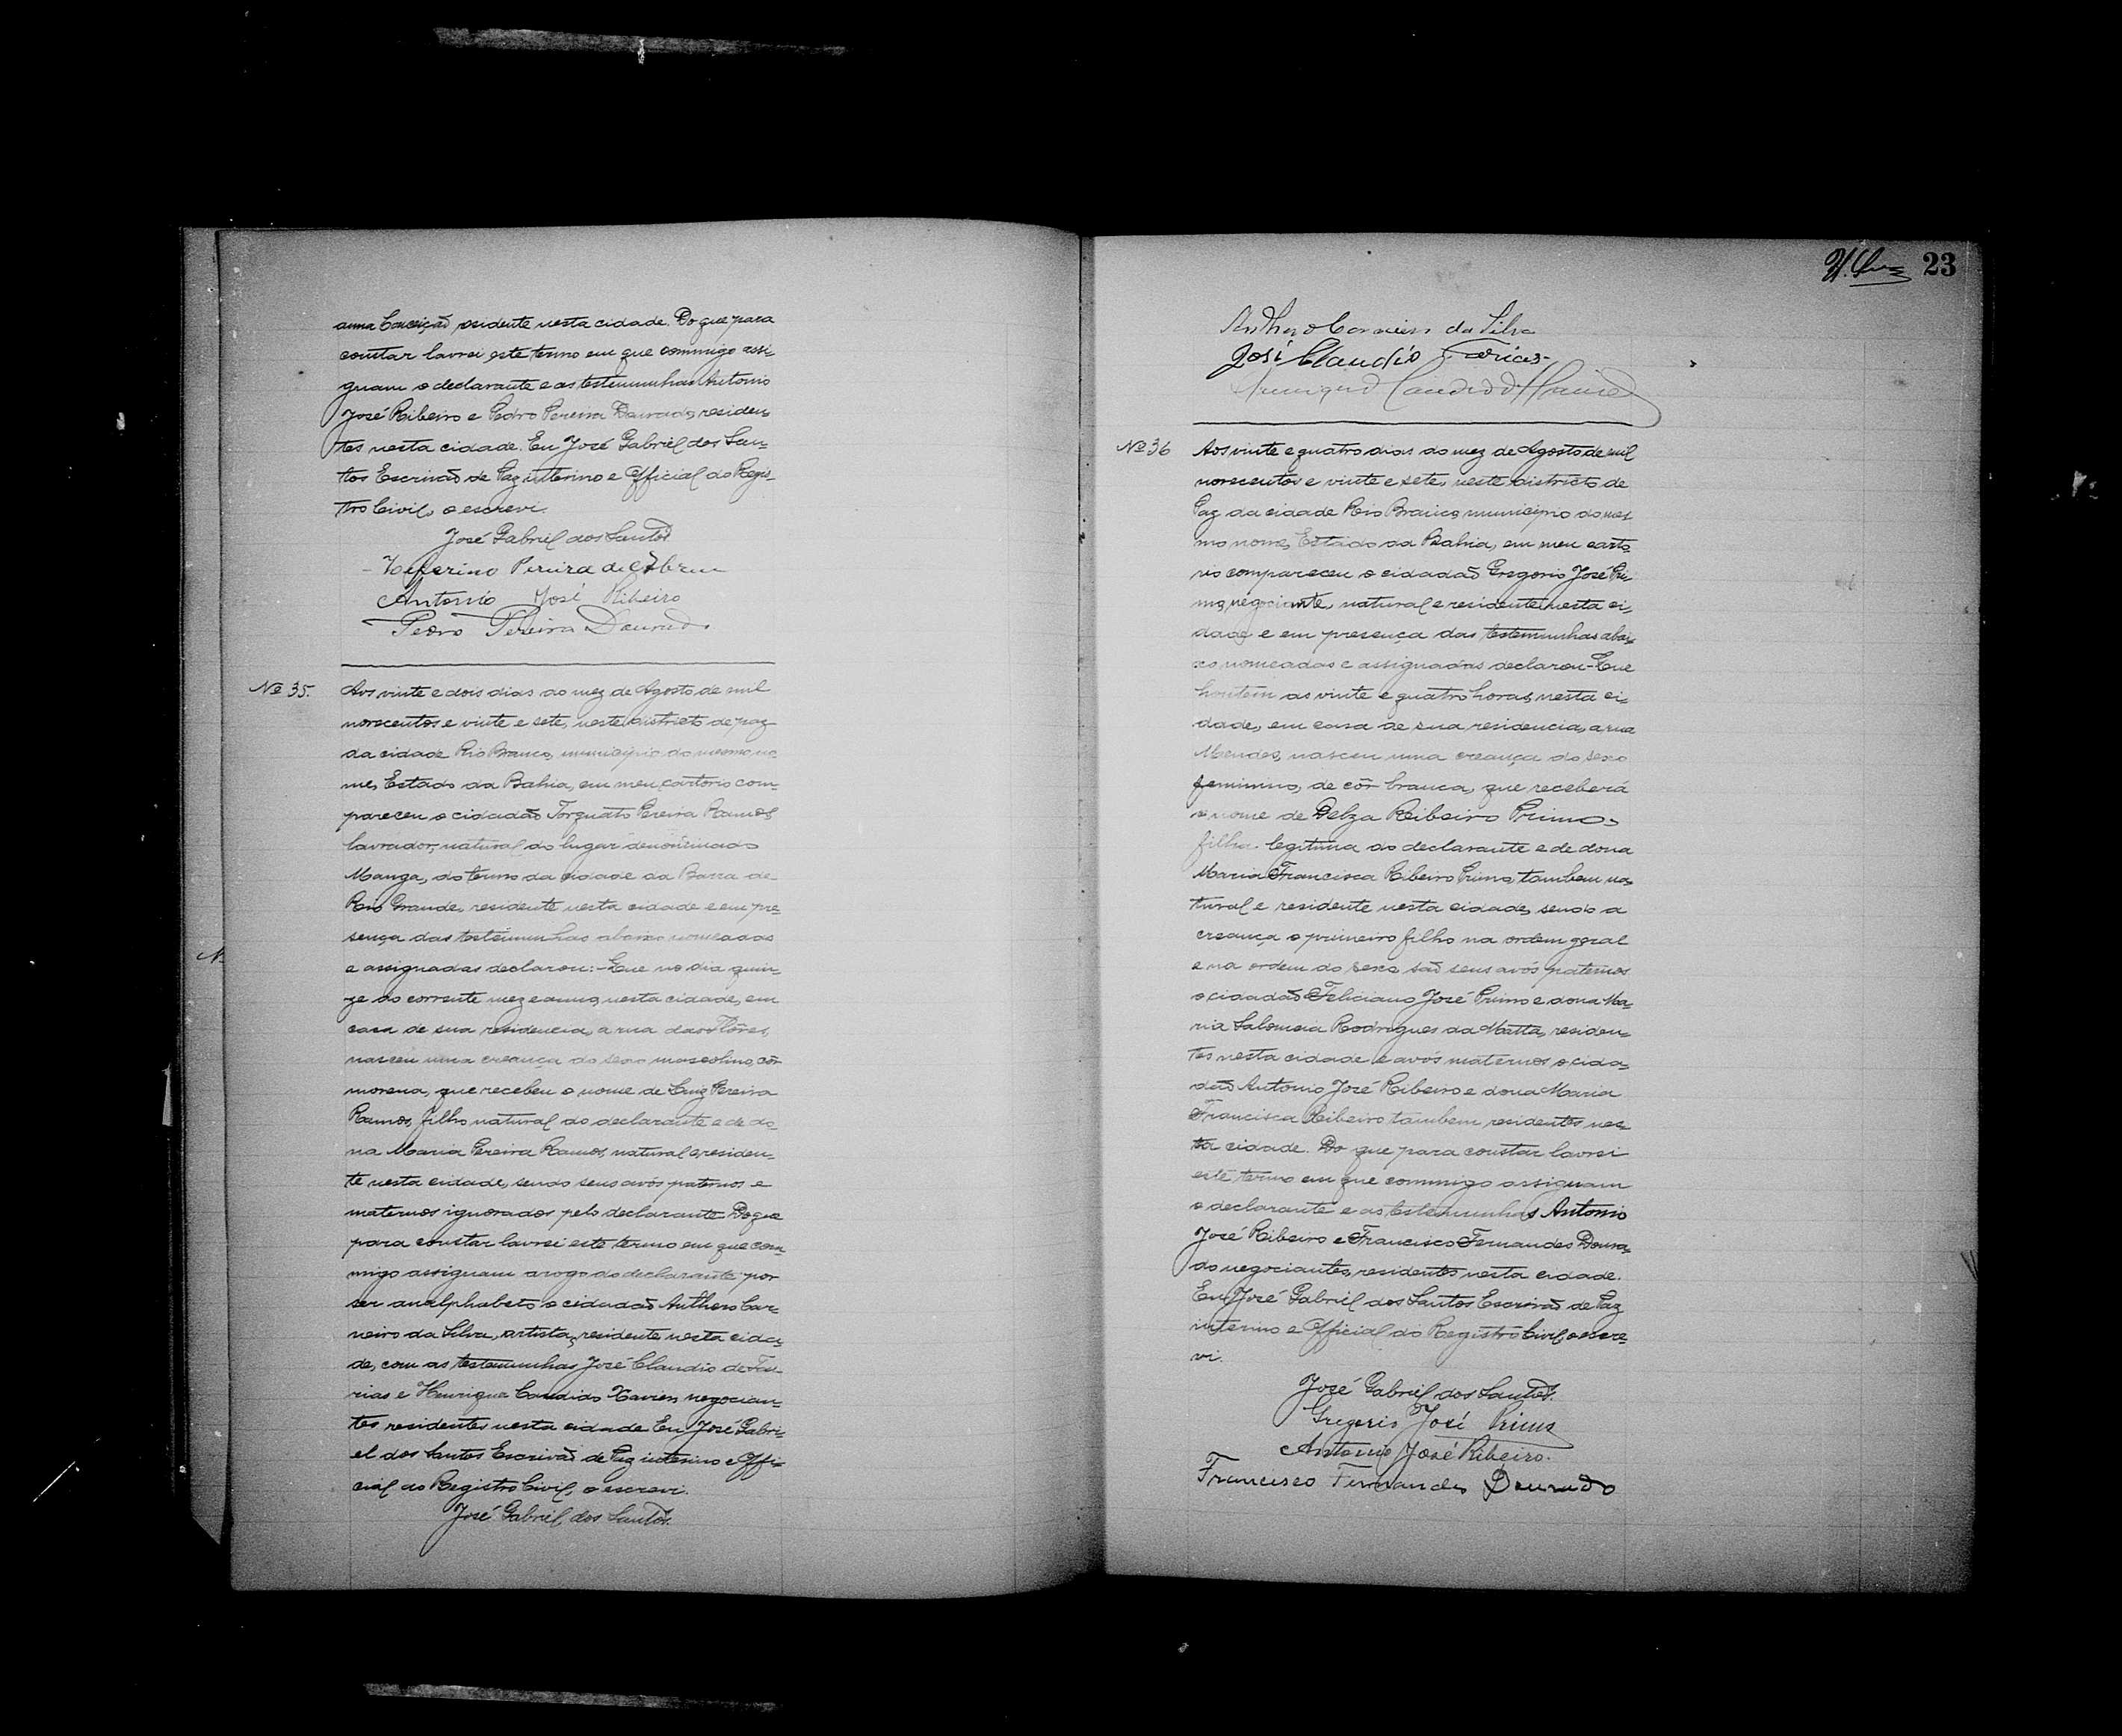 anna Conceição residente nesta cidade. Do que para
constar lavrei este termo em que commigo assi-
gnam o declarante e as testemunhas Antonio
José Ribeiro e Pedro Pereira Dourado, residen-
tes nesta cidade. Eu José Gabriel dos San-
tos Escrivão de Paz interino e Official do Regis-
tro Civil, o escrevi.
José Gabriel dos Santos
Zeferino Pereira de Abreu
Antonio José Ribeiro
Pedro Pereira Dourado
Nº 35.
Aos vinte e dois dias do mez de Agosto de mil
novecentos e vinte e sete, neste districto de paz
da cidade Rio Branco, municipio do mesmo no-
me, Estado da Bahia, em meu cartorio com-
pareceu o cidadão Torquato Pereira Ramos
lavrador, natural do lugar denominado
Manga, do termo da cidade da Barra do
Rio Grande, residente nesta cidade e em pre-
sença das testemunhas abaixo nomeadas
e assignadas declarou:- Que no dia quin-
ze do corrente mez e anno, nesta cidade, em
casa de sua residencia, a rua das Flôres,
nasceu uma creança do sexo mascolino, côr
morena, que recebeu o nome de Luiz Pereira
Ramos, filho natural do declarante e de do-
na Maria Pereira Ramos, natural e residen-
te nesta cidade, sendo seus avós paternos e
maternos ignorados pelo declarante. Do que
para constar lavrei este termo em que com-
migo assignam a rogo do declarante por
ser analphabeto o cidadão Anthero Car-
neiro da Silva, artista, residente nesta cida-
de, com as testemunhas José Claudio de Fa-
rias e Henrique Candido Xavier, negocian-
tes residentes nesta cidade. Eu José Gabri-
el dos Santos Escrivão de Paz interino e Offi-
cial do Registro Civil, o escrevi.
José Gabriel dos Santos.
23
Anthero Carneiro da Silva
José Claudio Farias
Nº 36
Aos vinte e quatro dias do mez de Agosto de mil
novecentos e vinte e sete, neste districto de
Paz da cidade Rio Branco, municipio do mes-
mo nome, Estado da Bahia, em meu carto-
rio compareceu o cidadão Gregorio José Pri-
mo, negociante, natural e residente nesta ci-
dade e em presença das testemunhas abai-
xo nomeadas e assignadas declarou- Que
hontem as vinte e quatro horas, nesta ci-
dade, em casa de sua residencia, a rua
Mendes, nasceu uma creança do sexo
feminino, de côr branca, que receberá
o nome de Delza Ribeiro Primo,
filha legitima do declarante e de dona
Maria Francisca Ribeiro Primo, tambem na-
tural e residente nesta cidade, sendo a
creança o primeiro filho na ordem geral
e na ordem do sexo são seus avós paternos
o cidadão Feliciano José Primo e dona Ma-
ria Salomeia Rodrigues da Matta, residen-
tes nesta cidade e avós maternos o cida-
dão Antonio José Ribeiro e dona Maria
Francisca Ribeiro tambem residentes nes-
ta cidade. Do que para constar lavrei
este termo em que commigo assignam
o declarante e as testemunhas Antonio
José Ribeiro e Francisco Fernandes Doura-
do negociantes, residentes nesta cidade.
Eu José Gabriel dos Santos Escrivão de Paz
interino e Official do Registro Civil, o escre-
vi.
José Gabriel dos Santos.
Gregorio José Primo
Antonio José Ribeiro.
Francisco Fernandes Dourado